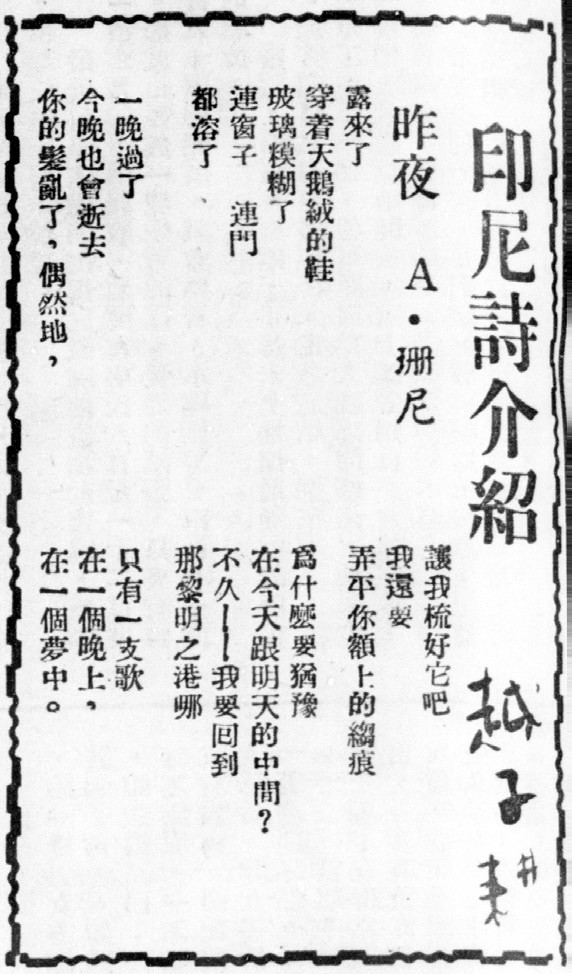 印尼詩介紹
越子耕
昨夜 A·珊尼
露來了
穿着天鵝絨的鞋
玻璃糢糊了
連窗子 連門
都溶了
一晚過了
今晚也會逝去
你的髮亂了，偶然地，
讓我梳好它吧
我還要
弄平你額上的縐痕
爲什麼要猶豫
在今天跟明天的中間？
不久——我要回到
那黎明之港哪
只有一支歌
在一個晚上，
在一個夢中。